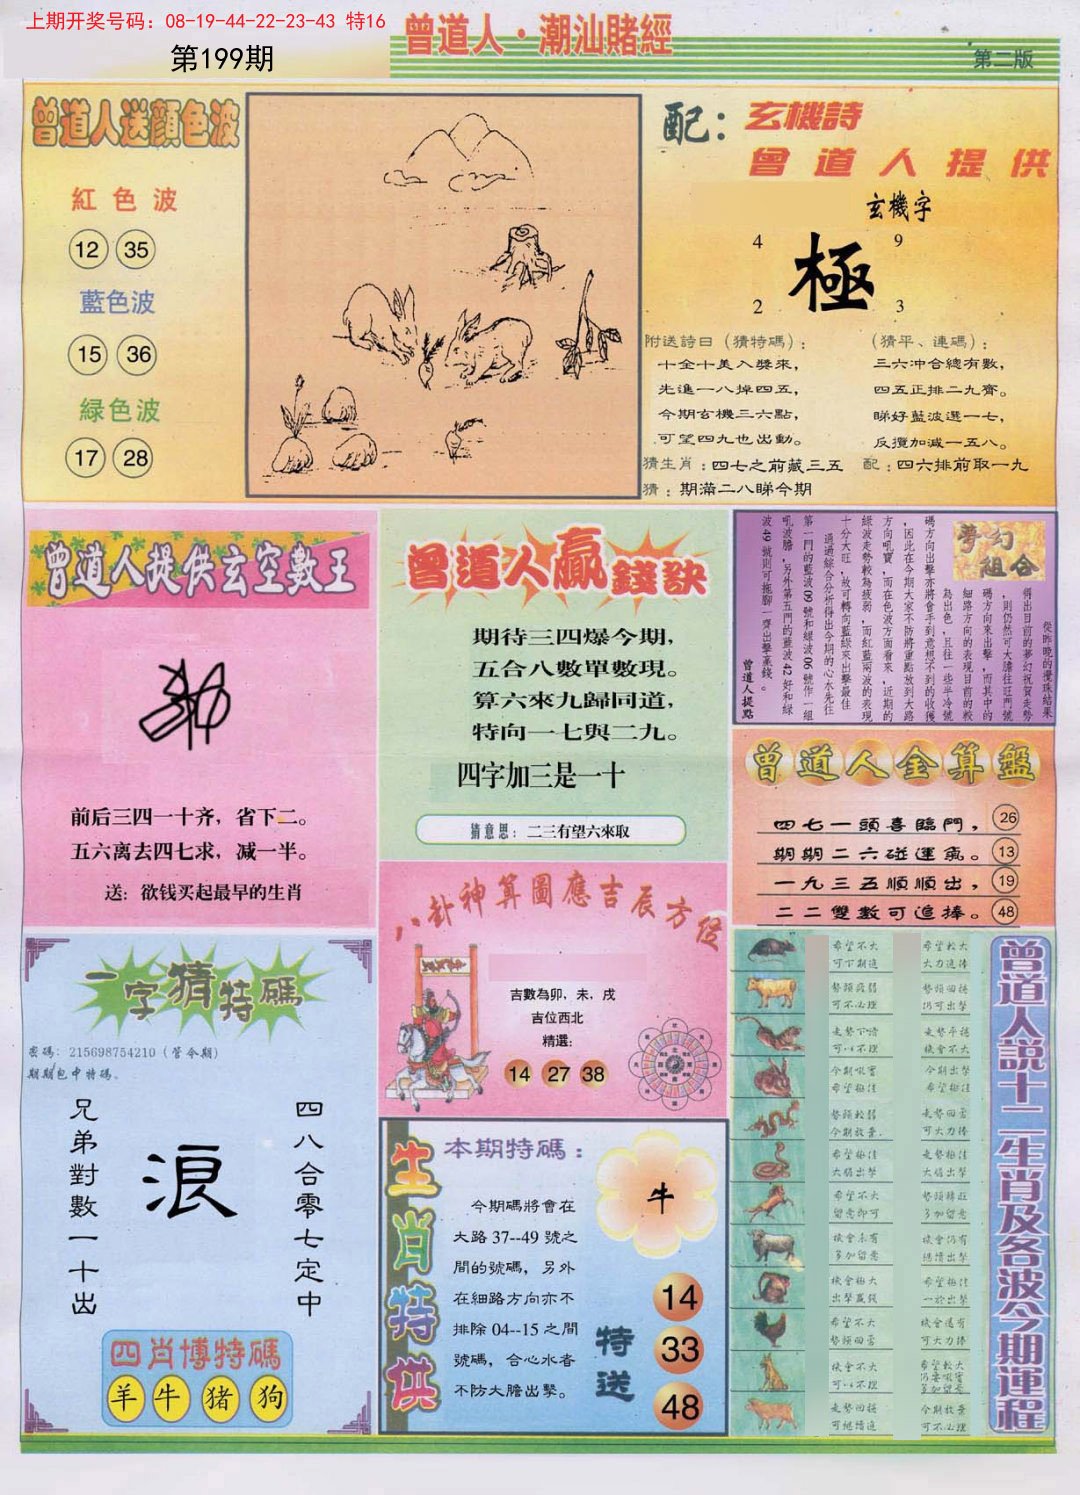 上期开奖号码：08-19-44-22-23-43 特16
第199期
曾道人·潮汕賭經
第二版
曾道人送顏色波
紅色波
12 35
藍色波
15 36
緑色波
17 28
配：玄機詩
曾道人提供
玄機字
4 9
極
2 3
附送詩曰（猜特碼）：
十全十美入獎來，
先進一八掉四五，
今期玄機三六點，
可望四九也出動。
（猜平、連碼）：
三六沖合總有數，
四五正排二九齊。
睇好藍波選一七，
反攬加減一五八。
猜生肖：四七之前藏三五
配：四六排前取一九
猜：期滿二八睇今期
曾道人提供玄空數王
前后三四一十齐，省下二。
五六离去四七求，减一半。
送：欲钱买起最早的生肖
曾道人贏錢訣
期待三四爆今期，
五合八數單數現。
算六來九歸同道，
特向一七與二九。
四字加三是一十
猜意思：二三有望六來取
夢幻組合
從昨晚的攪珠結果
得出目前的夢幻祝賀走勢
，則仍然可大膽往旺門號
碼方向來出擊，而其中的
細路方向的表現目前的較
為出色，且往一些半冷號
碼方向出擊亦將會手到意想不到的收獲
，因此在今期大家不防將重點放到大路
方向吼寶，而在色波方面看來，近期的
綠波走勢較為疲弱，而紅藍兩波的表現
十分大旺，故可轉向藍綠來出擊最佳
通過綜合分析得出今期的心水先往
第一門的藍波09號和綠波06號作一組
吼波膽，另外第五門的藍波42好和綠
波49號則可拖腳一齊出擊贏錢。
曾道人提點
曾道人金算盤
四七一頭喜臨門， 26
期期二六碰運氣。 13
一九三五順順出， 19
二二雙數可追捧。 48
八卦神算圖應吉辰方位
吉數為卯，未，戌
吉位西北
精選：
14 27 38
一字猜特碼
密碼：215698754210（管令期）
期期包中特碼、
四八合零七定中
浪
兄弟對數一十出
四肖博特碼
羊 牛 猪 狗
生肖特供
本期特碼：
今期碼將會在
大路37--49號之
間的號碼，另外
在細路方向亦不
排除04--15之間
號碼，合心水者
不防大膽出擊。
牛
特送
14
33
48
曾道人説十二生肖及各波今期運程
希望不大
可下期追
希望較大
大力追捧